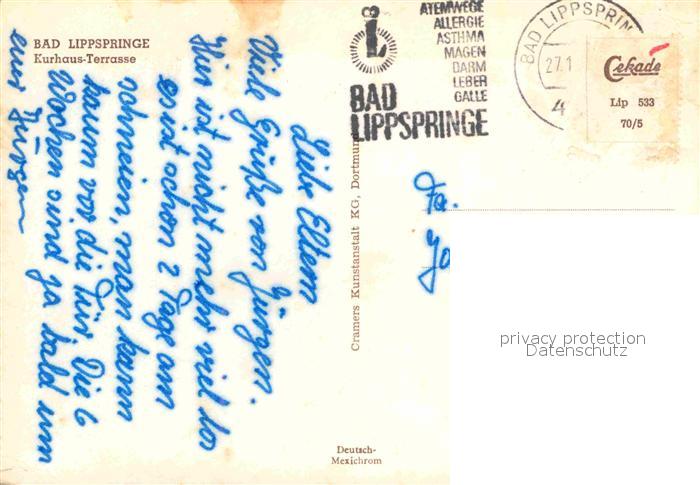 BAD LIPPSPRINGE
Kurhaus-Terrasse
Liebe Eltern
Viele Grüße von Jürgen.
Hier ist nicht mehr viel los
es ist schon 2 Tage am
schneien, man kann
kaum vor die Tür. Die 6
Wochen sind ja bald um
euer Jürgen
Cramers Kunstanstalt KG, Dortmund
Deutsch-
Mexichrom
ATEMWEGE
ALLERGIE
ASTHMA
MAGEN
DARM
LEBER
GALLE
BAD
LIPPSPRINGE
BAD LIPPSPRIN
27.1
4
Cekade
Lip 533
70/5
Fa.
privacy protection
Datenschutz